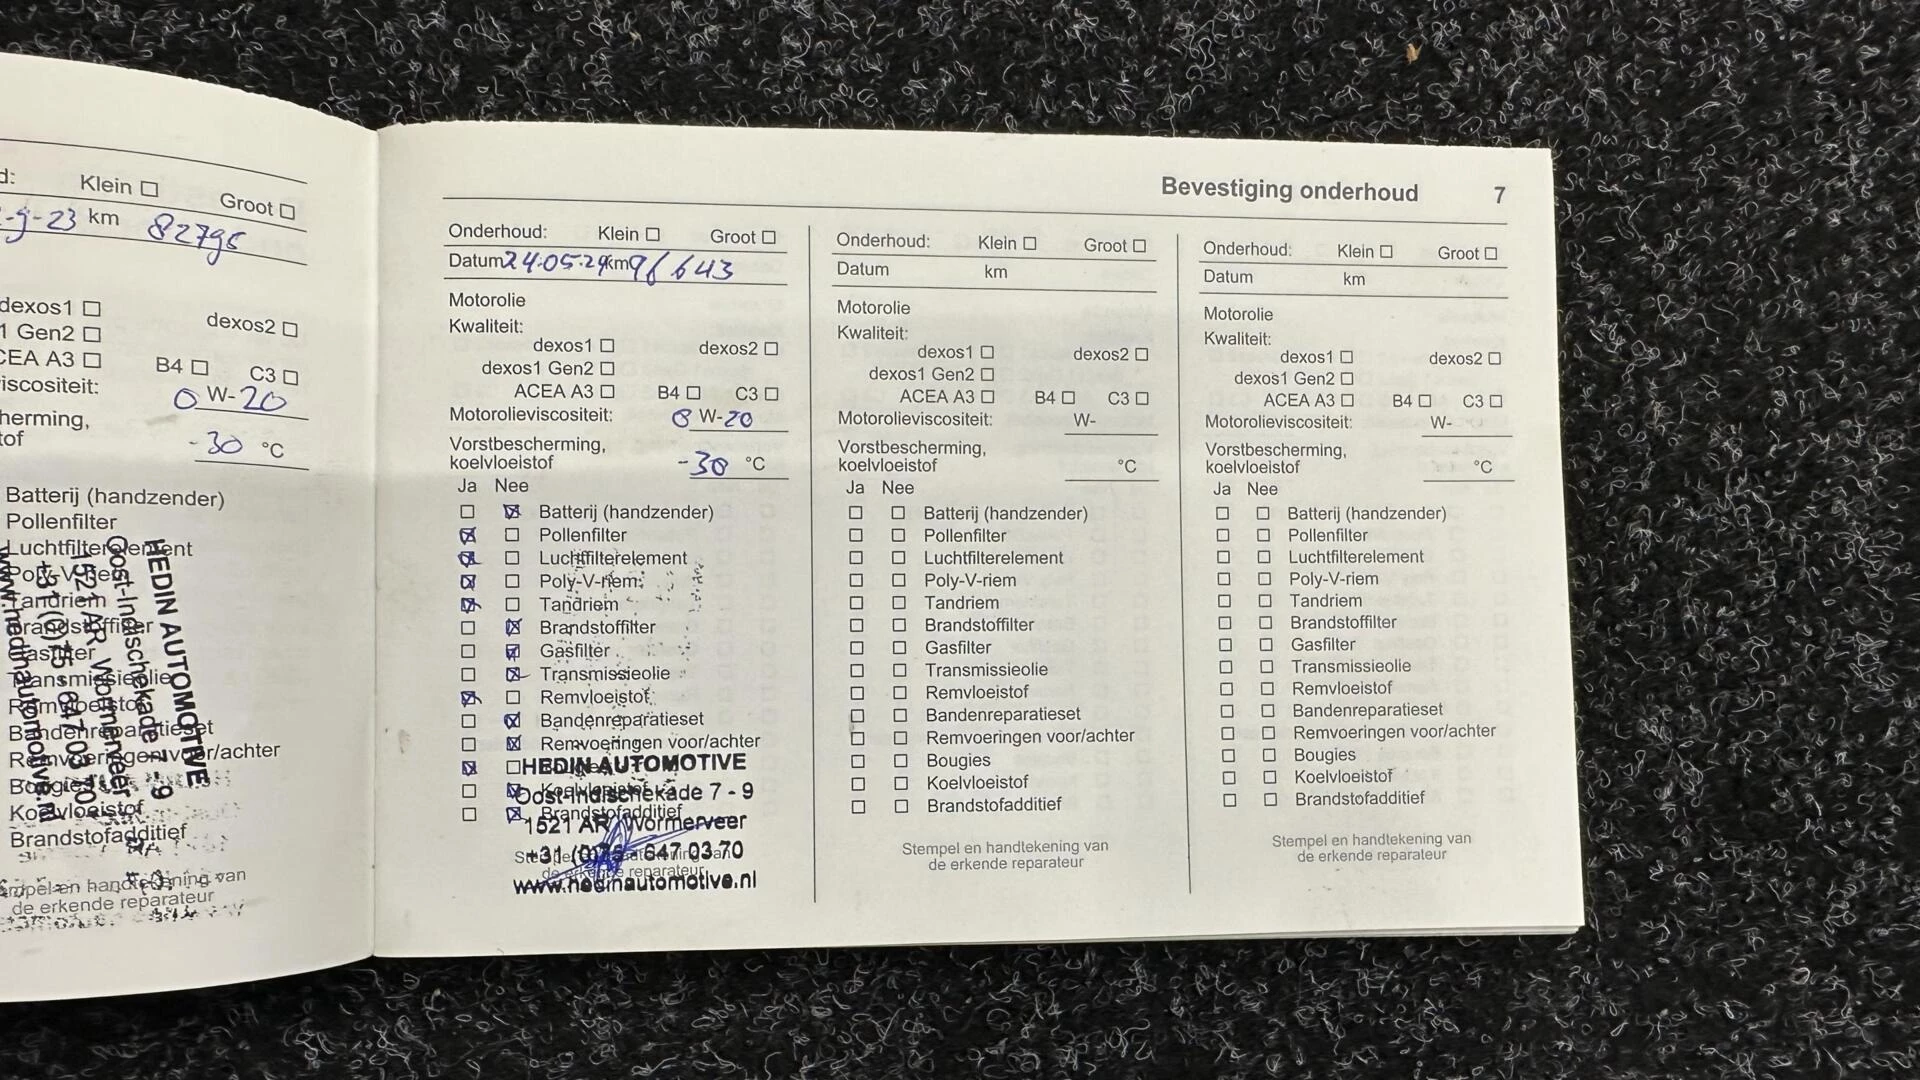 d: Klein ☐ Groot ☐
-9-23 km 82795
dexos1 ☐ dexos2 ☐
1 Gen2 ☐
CEA A3 ☐ B4 ☐ C3 ☐
viscositeit: 0 W-20
herming,
tof -30 °C
Batterij (handzender)
Pollenfilter
Luchtfilterelement
Poly-V-riem
Tandriem
Brandstoffilter
Gasfilter
Transmissieolie
Remvloeistof
Bandenreparatieset
Remvoeringen voor/achter
Bougies
Koelvloeistof
Brandstofadditief
HEDIN AUTOMOTIVE
Oost-Indischekade 7 - 9
1521 AR Wormerveer
+31 (0)75 - 647 03 70
www.hedinautomotive.nl
Stempel en handtekening van
de erkende reparateur
Bevestiging onderhoud 7
Onderhoud: Klein ☐ Groot ☐
Datum 24-05-24 km 96643
Motorolie
Kwaliteit:
dexos1 ☐ dexos2 ☐
dexos1 Gen2 ☐
ACEA A3 ☐ B4 ☐ C3 ☐
Motorolieviscositeit: 0 W-20
Vorstbescherming,
koelvloeistof -30 °C
Ja Nee
☐ ☒ Batterij (handzender)
☒ ☐ Pollenfilter
☒ ☐ Luchtfilterelement
☒ ☐ Poly-V-riem
☒ ☐ Tandriem
☐ ☒ Brandstoffilter
☐ ☒ Gasfilter
☐ ☒ Transmissieolie
☒ ☐ Remvloeistof
☐ ☒ Bandenreparatieset
☐ ☒ Remvoeringen voor/achter
☒ ☐ Bougies
☐ ☒ Koelvloeistof
☐ ☒ Brandstofadditief
HEDIN AUTOMOTIVE
Oost-Indischekade 7 - 9
1521 AR Wormerveer
+31 (0)75 - 647 03 70
www.hedinautomotive.nl
Stempel en handtekening van
de erkende reparateur
Onderhoud: Klein ☐ Groot ☐
Datum km
Motorolie
Kwaliteit:
dexos1 ☐ dexos2 ☐
dexos1 Gen2 ☐
ACEA A3 ☐ B4 ☐ C3 ☐
Motorolieviscositeit: W-
Vorstbescherming,
koelvloeistof °C
Ja Nee
☐ ☐ Batterij (handzender)
☐ ☐ Pollenfilter
☐ ☐ Luchtfilterelement
☐ ☐ Poly-V-riem
☐ ☐ Tandriem
☐ ☐ Brandstoffilter
☐ ☐ Gasfilter
☐ ☐ Transmissieolie
☐ ☐ Remvloeistof
☐ ☐ Bandenreparatieset
☐ ☐ Remvoeringen voor/achter
☐ ☐ Bougies
☐ ☐ Koelvloeistof
☐ ☐ Brandstofadditief
Stempel en handtekening van
de erkende reparateur
Onderhoud: Klein ☐ Groot ☐
Datum km
Motorolie
Kwaliteit:
dexos1 ☐ dexos2 ☐
dexos1 Gen2 ☐
ACEA A3 ☐ B4 ☐ C3 ☐
Motorolieviscositeit: W-
Vorstbescherming,
koelvloeistof °C
Ja Nee
☐ ☐ Batterij (handzender)
☐ ☐ Pollenfilter
☐ ☐ Luchtfilterelement
☐ ☐ Poly-V-riem
☐ ☐ Tandriem
☐ ☐ Brandstoffilter
☐ ☐ Gasfilter
☐ ☐ Transmissieolie
☐ ☐ Remvloeistof
☐ ☐ Bandenreparatieset
☐ ☐ Remvoeringen voor/achter
☐ ☐ Bougies
☐ ☐ Koelvloeistof
☐ ☐ Brandstofadditief
Stempel en handtekening van
de erkende reparateur